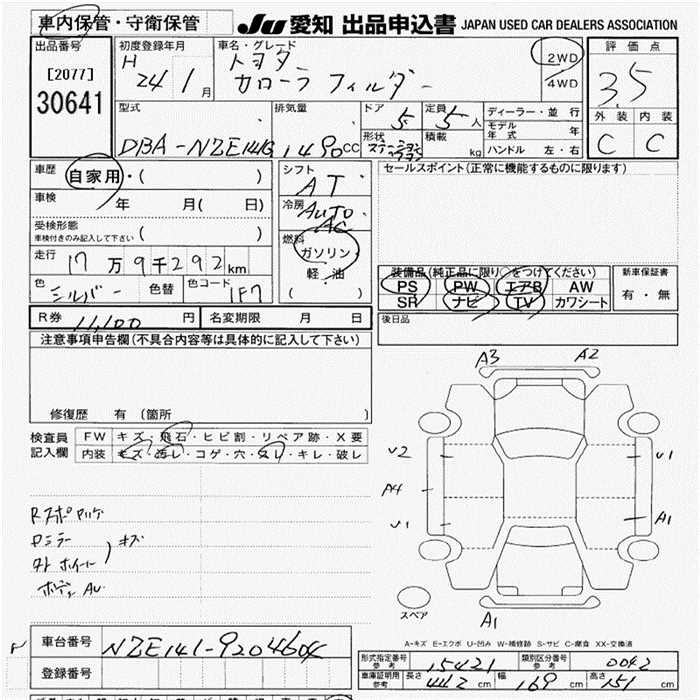 車内保管・守衛保管
JU 愛知 出品申込書 JAPAN USED CAR DEALERS ASSOCIATION
出品番号 初度登録年月 車名・グレード 評価点
[2077] H 24年 1月 トヨタ 2WD 3.5
30641 カローラ フィルダー 4WD
外装 内装
型式 排気量 ドア 定員 ディーラー・並行
DBA-NZE141G 1490cc 5 5人 モデル年式 年 C C
形状 ステーションワゴン 積載 kg ハンドル 左・右
車歴 自家用・( ) シフト AT セールスポイント(正常に機能するものに限ります)
車検 年 月( 日) 冷房 AUTO AC
受検形態 車検付きのみ記入して下さい ( ) 燃料 ガソリン
走行 17万9千292km 軽・油 装備品(純正品に限り○をつけてください) 新車保証書
色 シルバー 色替 色コード 1F7 ( ) PS PW エアB AW 有・無
SR ナビ TV カワシート
R券 11,100円 名変期限 月 日 後日品
注意事項申告欄(不具合内容等は具体的に記入して下さい)
A3 A2
修復歴 有 (箇所 )
検査員記入欄 FW キズ・飛石・ヒビ割・リペア跡・X要
内装 キズ・汚レ・コゲ・穴・スレ・キレ・破レ
U2 U1
A4
U1 A1
Rスポ
ミラー キズ
ホイール
ボディ AU
スペア
A1
A-キズ E-エクボ U-凹み W-補修跡 S-サビ C-腐食 XX-交換済
車台番号 NZE141-9204604
登録番号
形式指定番号 参考 15421 類別区分番号 参考 0042
車庫証明用 参考 長さ 442cm 幅 169cm 高さ 151cm